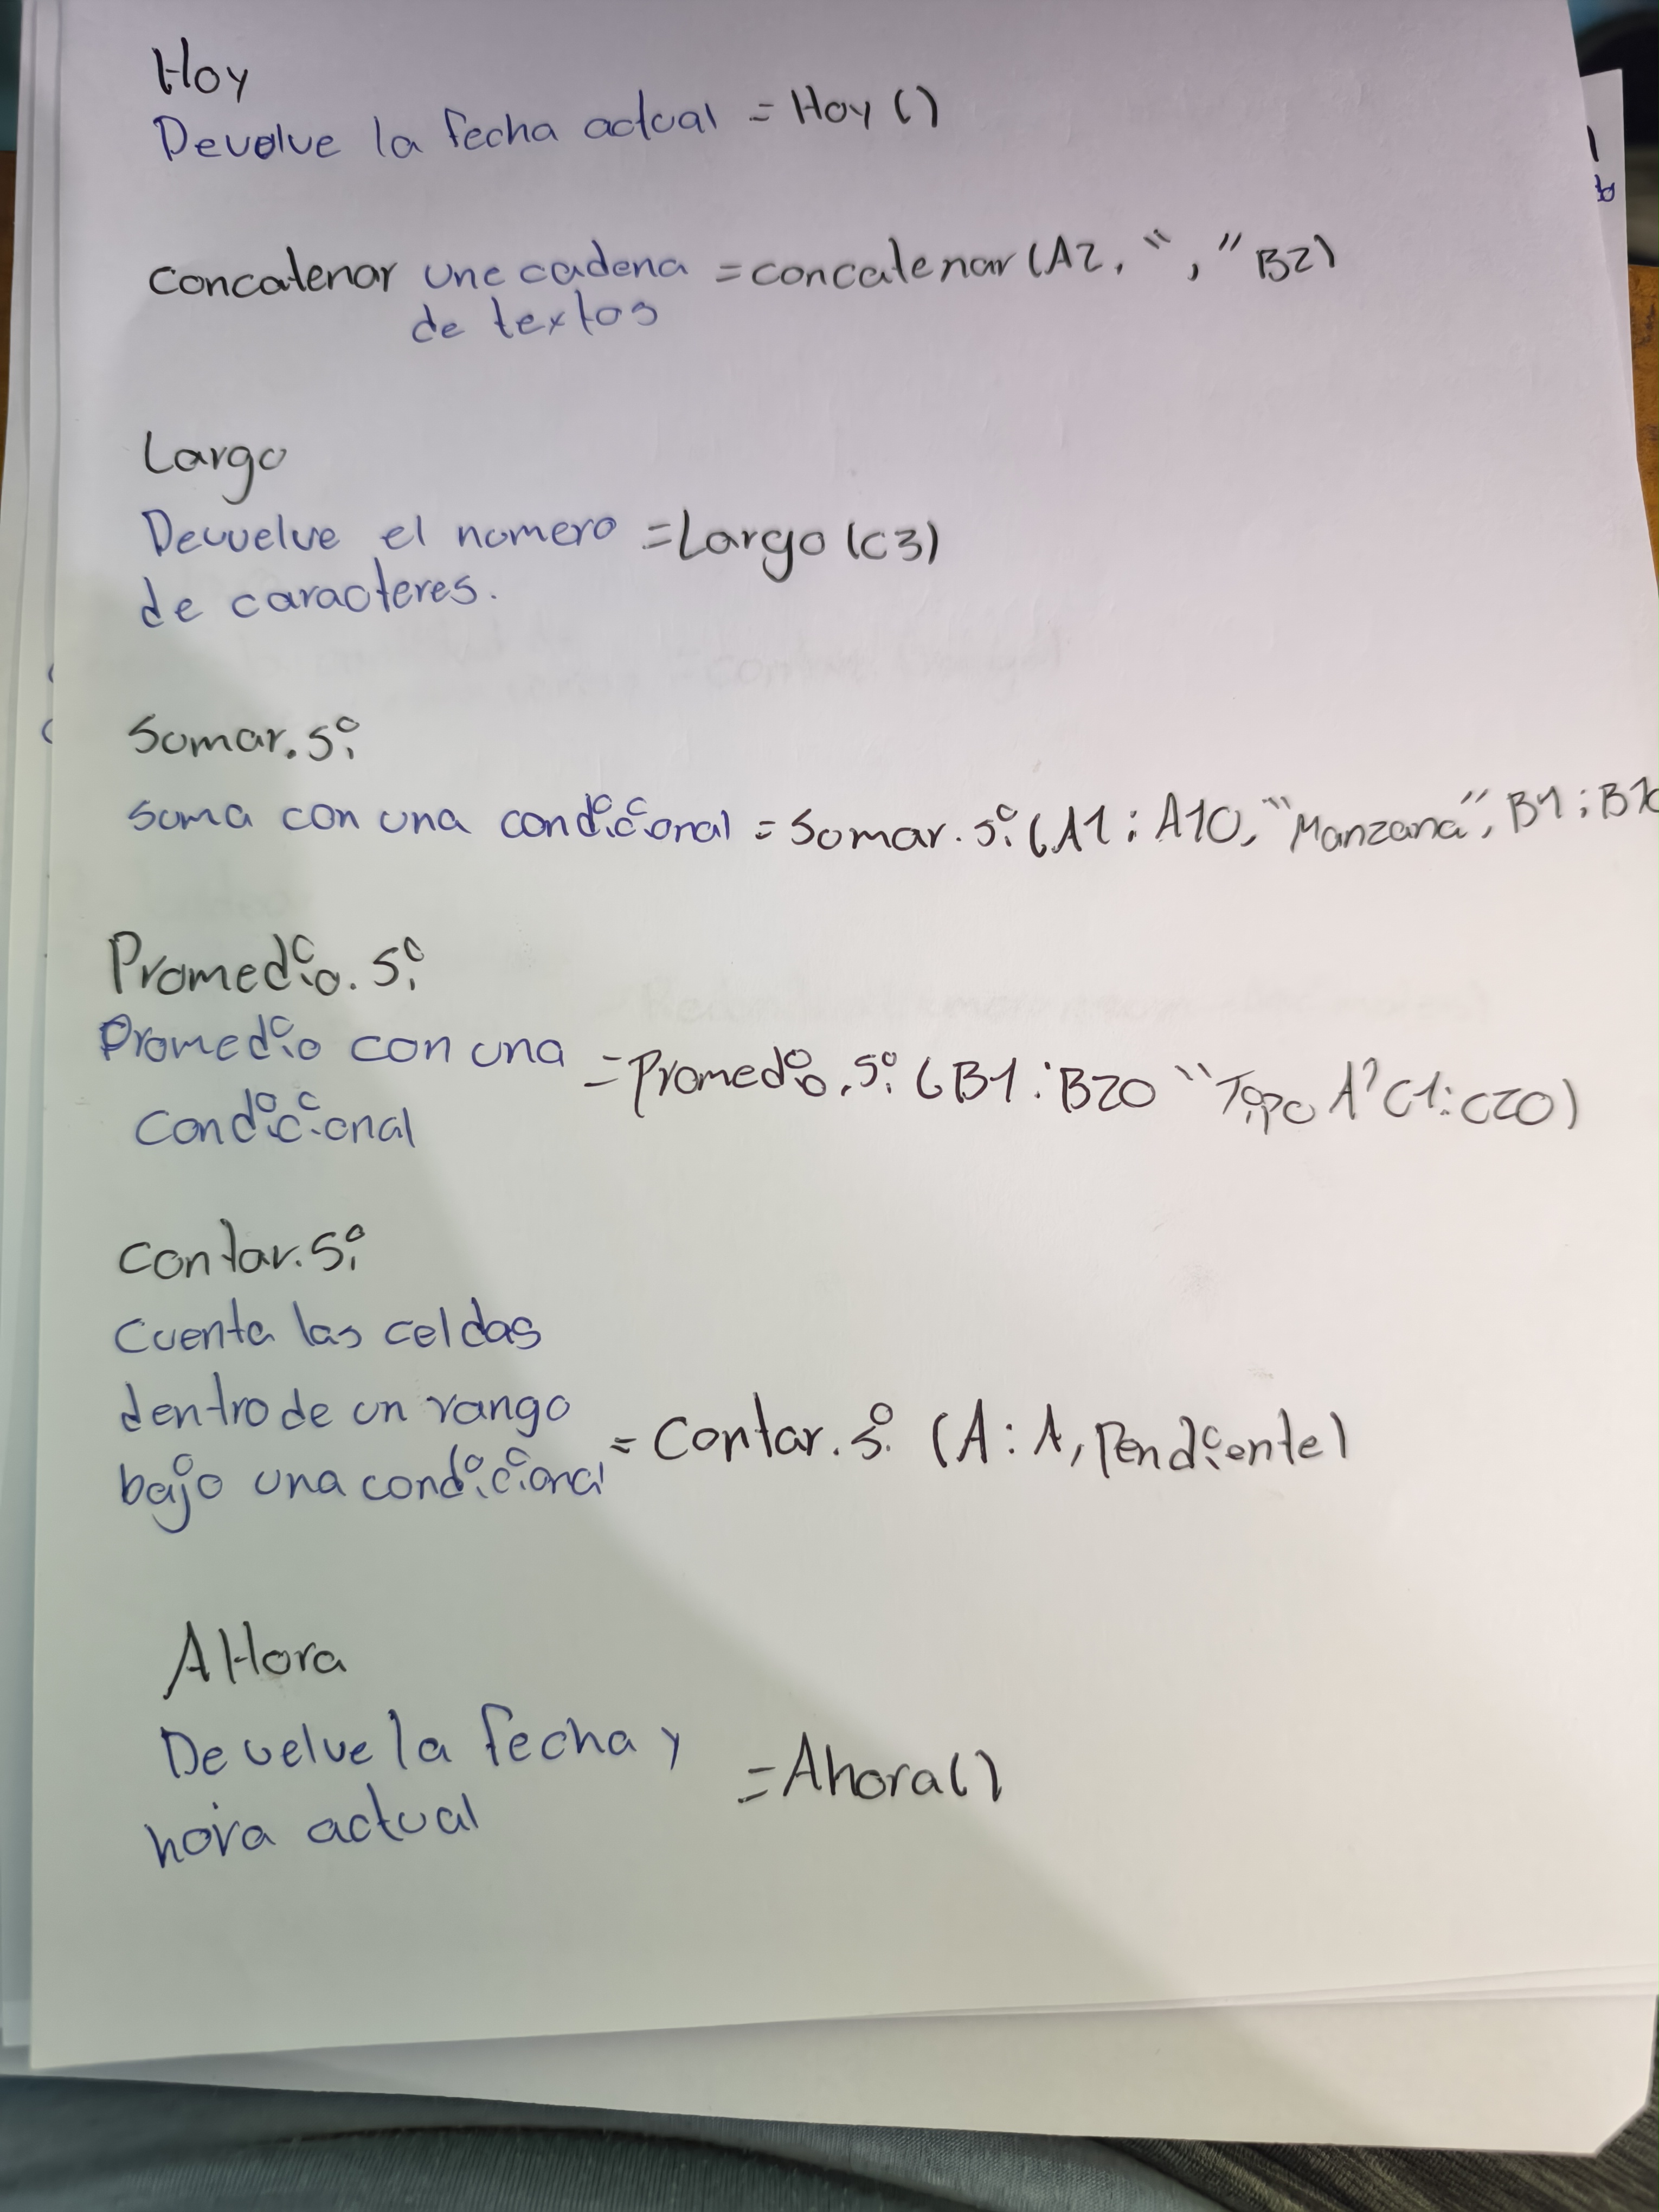 Hoy
Devuelve la fecha actual = Hoy ()
Concatenar une cadena = concatenar (A2, " , " B2)
de textos
Largo
Devuelve el numero = Largo (C3)
de caracteres.
Sumar.si
suma con una condicional = Sumar.si (A1:A10, "Manzana", B1:B10
Promedio.si
Promedio con una = Promedio.si (B1:B20 "Tipo A" C1:C20)
Condicional
Contar.si
Cuenta las celdas
dentro de un rango
bajo una condicional = Contar.si (A:A, Pendiente)
AHora
Devuelve la fecha y
hora actual = Ahora()